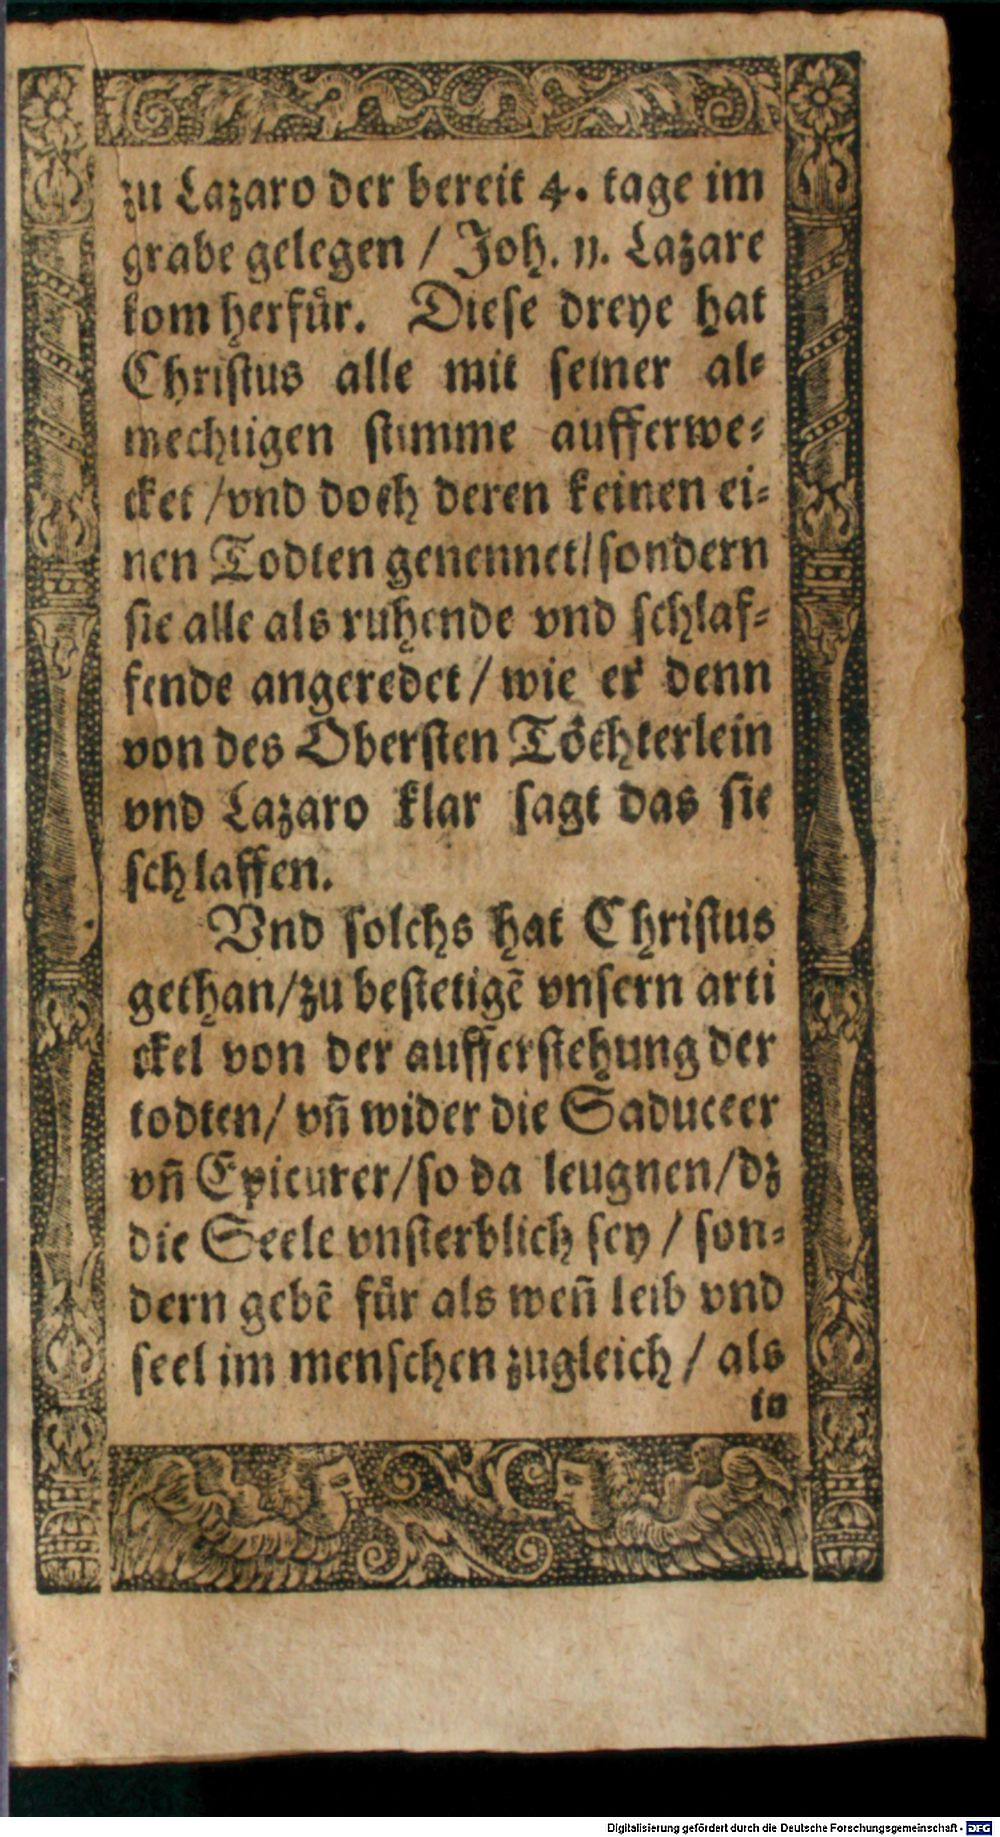 zu Lazaro der bereit 4. tage im
grabe gelegen / Joh. 11. Lazare
kom herfuͤr. Diese dreye hat
Christus alle mit seiner al⸗
mechtigen stimme aufferwe⸗
cket /vnd doch deren keinen ei⸗
nen Todten genennet/sondern
sie alle als ruhende vnd schlaf⸗
fende angeredet / wie er denn
von des Obersten Toͤchterlein
vnd Lazaro klar sagt das sie
schlaffen.
Vnd solchs hat Christus
gethan/zu bestetigẽ vnsern arti
ckel von der aufferstehung der
todten/ vñ wider die Saduceer
vñ Epicurer/so da leugnen/dz
die Seele vnsterblich sey / son⸗
dern gebẽ fuͤr als weñ leib vnd
seel im menschen zugleich / als
in
Digitalisierung gefördert durch die Deutsche Forschungsgemeinschaft - DFG